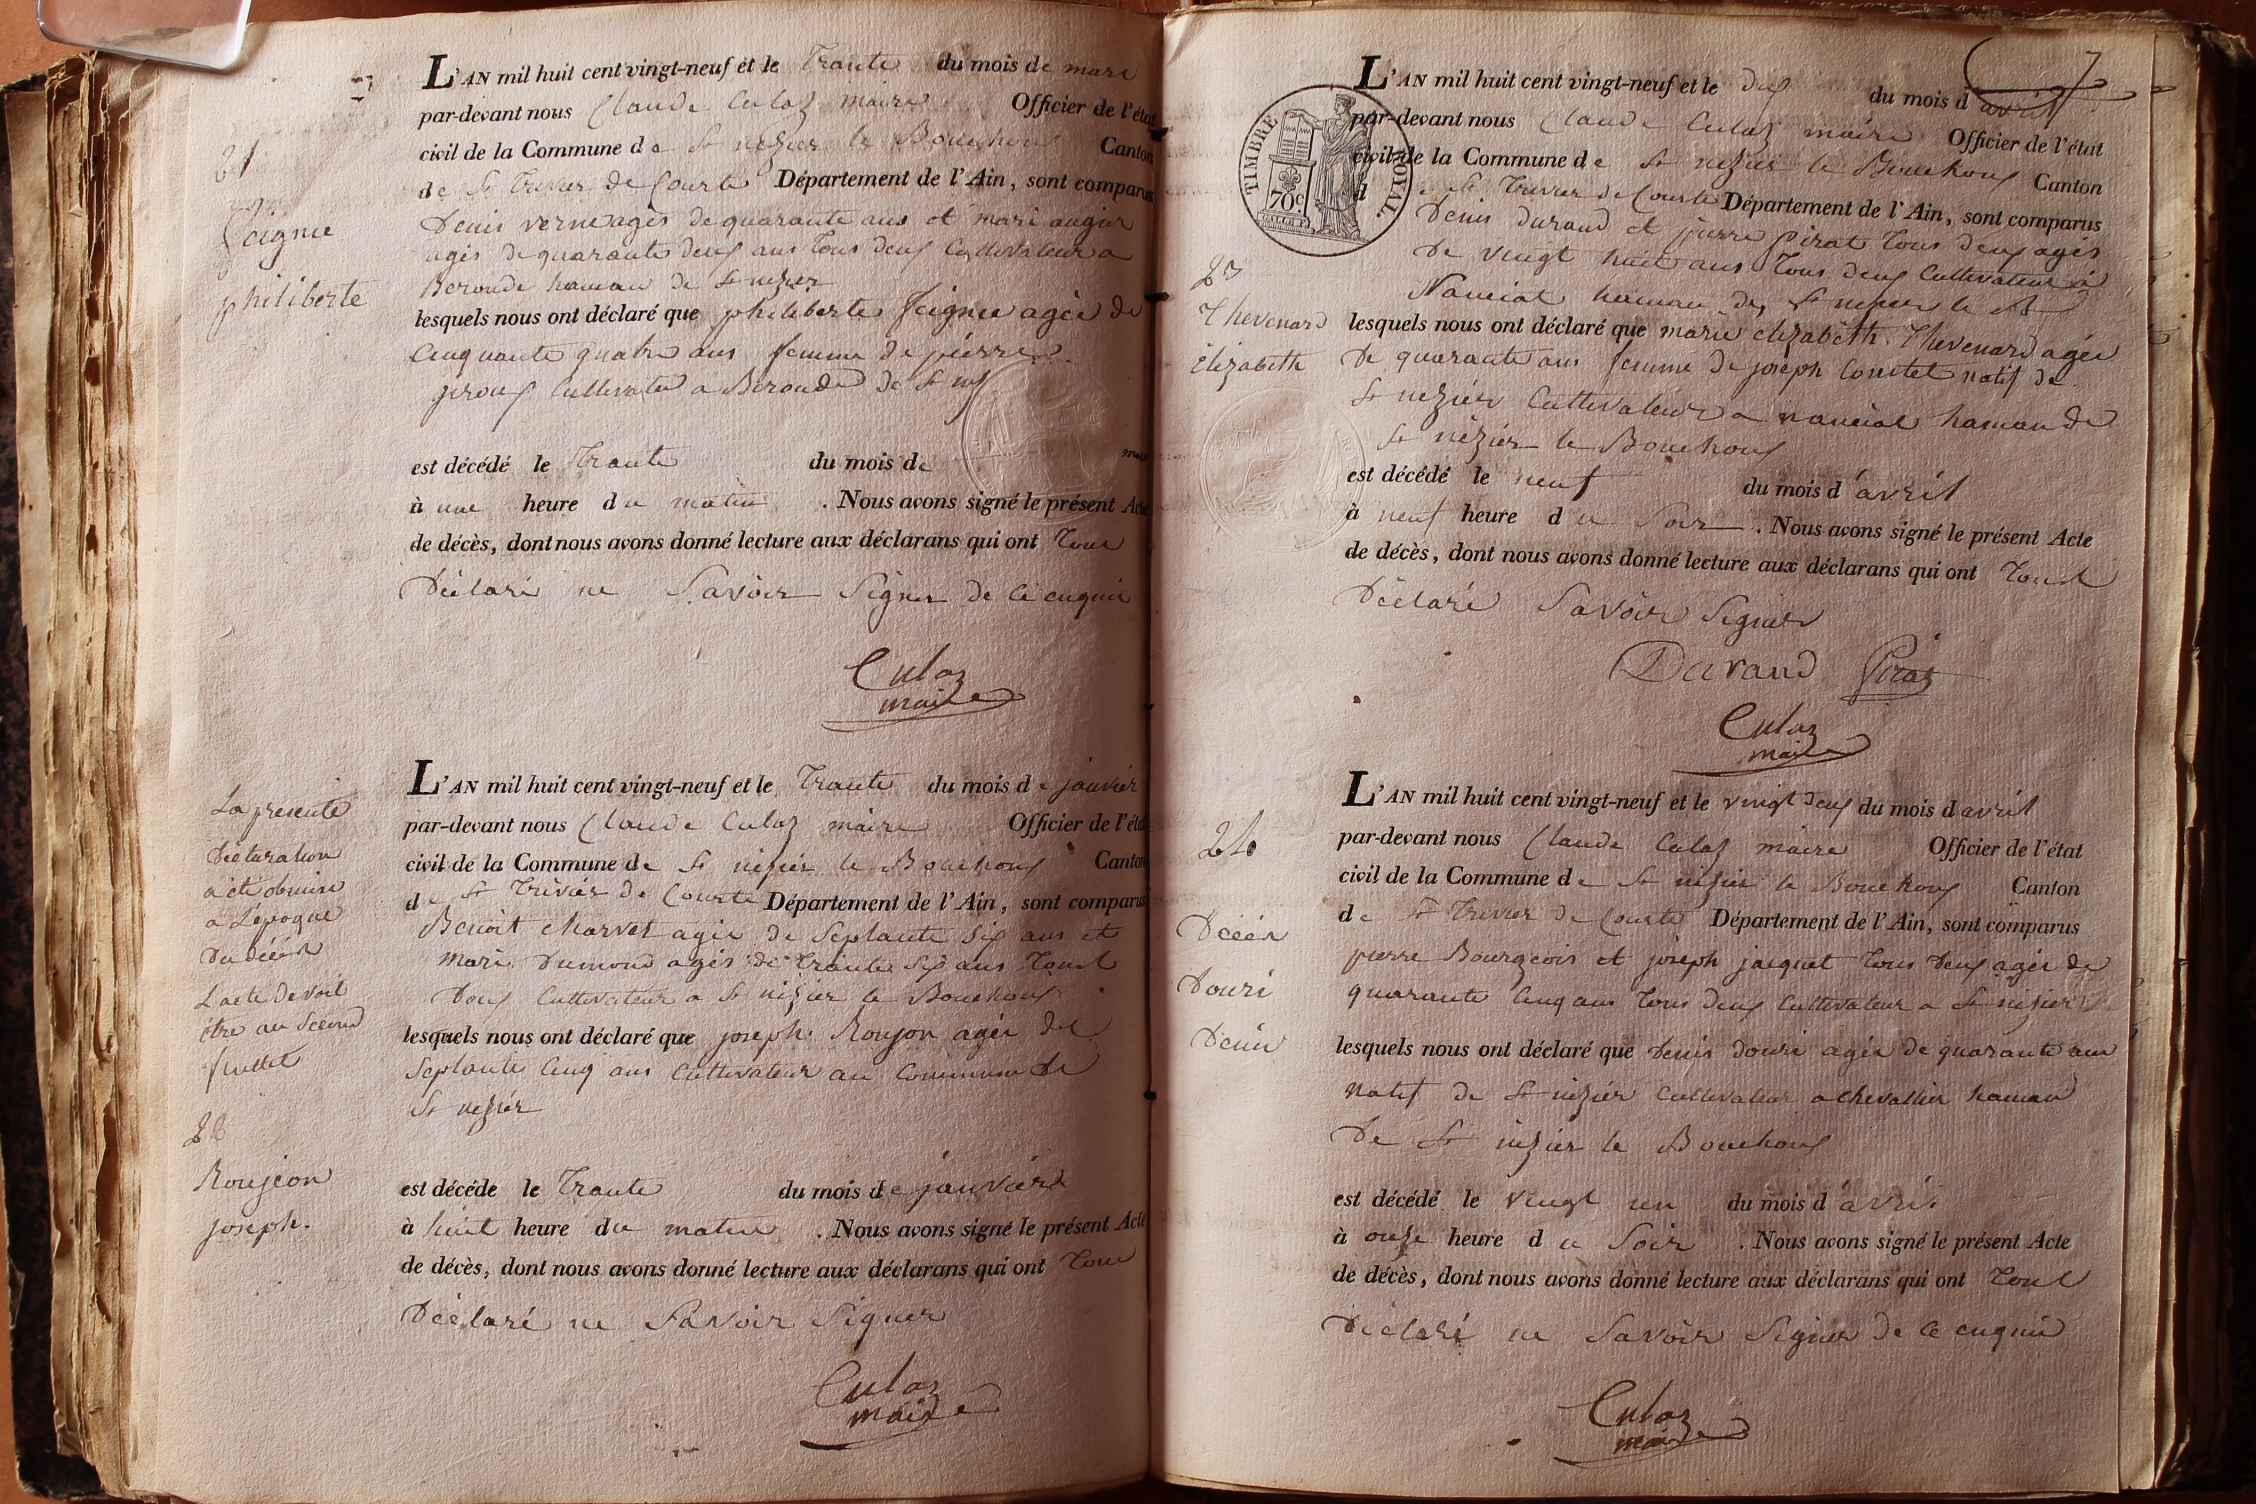 L'AN mil huit cent vingt-neuf et le Trante du mois de mars
par-devant nous Claude Culaz maire Officier de l'état
civil de la Commune de St nezier le Bouchoux Canton
de St Trivier de Courte Département de l'Ain, sont comparus
Denis verne agés de quarante ans et mari
agés de quarante deux ans Tous deux Cultivateur a
Beronde hamau de St nezier
lesquels nous ont déclaré que philiberte feignie agée de
Cinquante quatre ans femme de pierre
Cultivateur a Beronde de St
est décédé le Trante du mois de mars
à une heure du matin . Nous avons signé le présent Acte
de décès, dont nous avons donné lecture aux déclarans qui ont Tous
Déclaré ne Savoir Signer de ce enquis
Culaz
maire
21
feignie
philiberte
L'AN mil huit cent vingt-neuf et le Trante du mois de janvier
par-devant nous Claude Culaz maire Officier de l'état
civil de la Commune de St nizier le Bouchoux Canton
de St Trivier de Courte Département de l'Ain, sont comparus
Benoit Charvet agée de Septante Six ans et
mari Dumond agés de Trante Six ans Tout
Deux Cultivateur a St nizier le Bouchoux
lesquels nous ont déclaré que joseph Roujon agée de
Septante Cinq ans Cultivateur au Commune de
St nezier
est décédé le Trante du mois de janvier
à huit heure du matin . Nous avons signé le présent Acte
de décès, dont nous avons donné lecture aux déclarans qui ont Tous
Déclaré ne Savoir Signer
Culaz
maire
La presente
Déclaration
a été obmise
a L'époque
Du décés
L'acte Devoit
être au Second
feuillet
22
Roujeon
joseph.
7
TIMBRE ROYAL
70c
L'AN mil huit cent vingt-neuf et le dix du mois d'avril
par-devant nous Claude Culaz maire Officier de l'état
civil de la Commune de St nezier le Bouchoux Canton
de St Trivier de Courte Département de l'Ain, sont comparus
Denis durand et pierre pirat Tous deux agés
De vingt huit ans Tous deux Cultivateur à
Nanciat hamau de St nezier le B
lesquels nous ont déclaré que marie elizabeth Thevenard agée
De quarante ans femme de joseph Contet natif de
St nezier Cultivateur a nanciat hamau de
St nézier le Bouchoux
est décédé le neuf du mois d'avril
à neuf heure du Soir . Nous avons signé le présent Acte
de décès, dont nous avons donné lecture aux déclarans qui ont Tous
Déclaré Savoir Signer
Durand Pirat
Culaz
maire
23
Thevenard
Elizabeth
L'AN mil huit cent vingt-neuf et le vingt deux du mois d'avril
par-devant nous Claude Culaz maire Officier de l'état
civil de la Commune de St nizier le Bouchoux Canton
de St Trivier de Courte Département de l'Ain, sont comparus
pierre Bourgeois et joseph jacquet Tous Deux agée de
quarante Cinq ans Tous deux Cultivateur a St nizier
lesquels nous ont déclaré que Denis douri agée de quarante ans
natif de St nizier Cultivateur a chevallier hamau
De St nizier le Bouchoux
est décédé le vingt un du mois d'avril
à onze heure du Soir . Nous avons signé le présent Acte
de décès, dont nous avons donné lecture aux déclarans qui ont Tout
Déclaré ne Savoir Signer de ce enquis
Culaz
maire
24
Décés
Douri
Denis